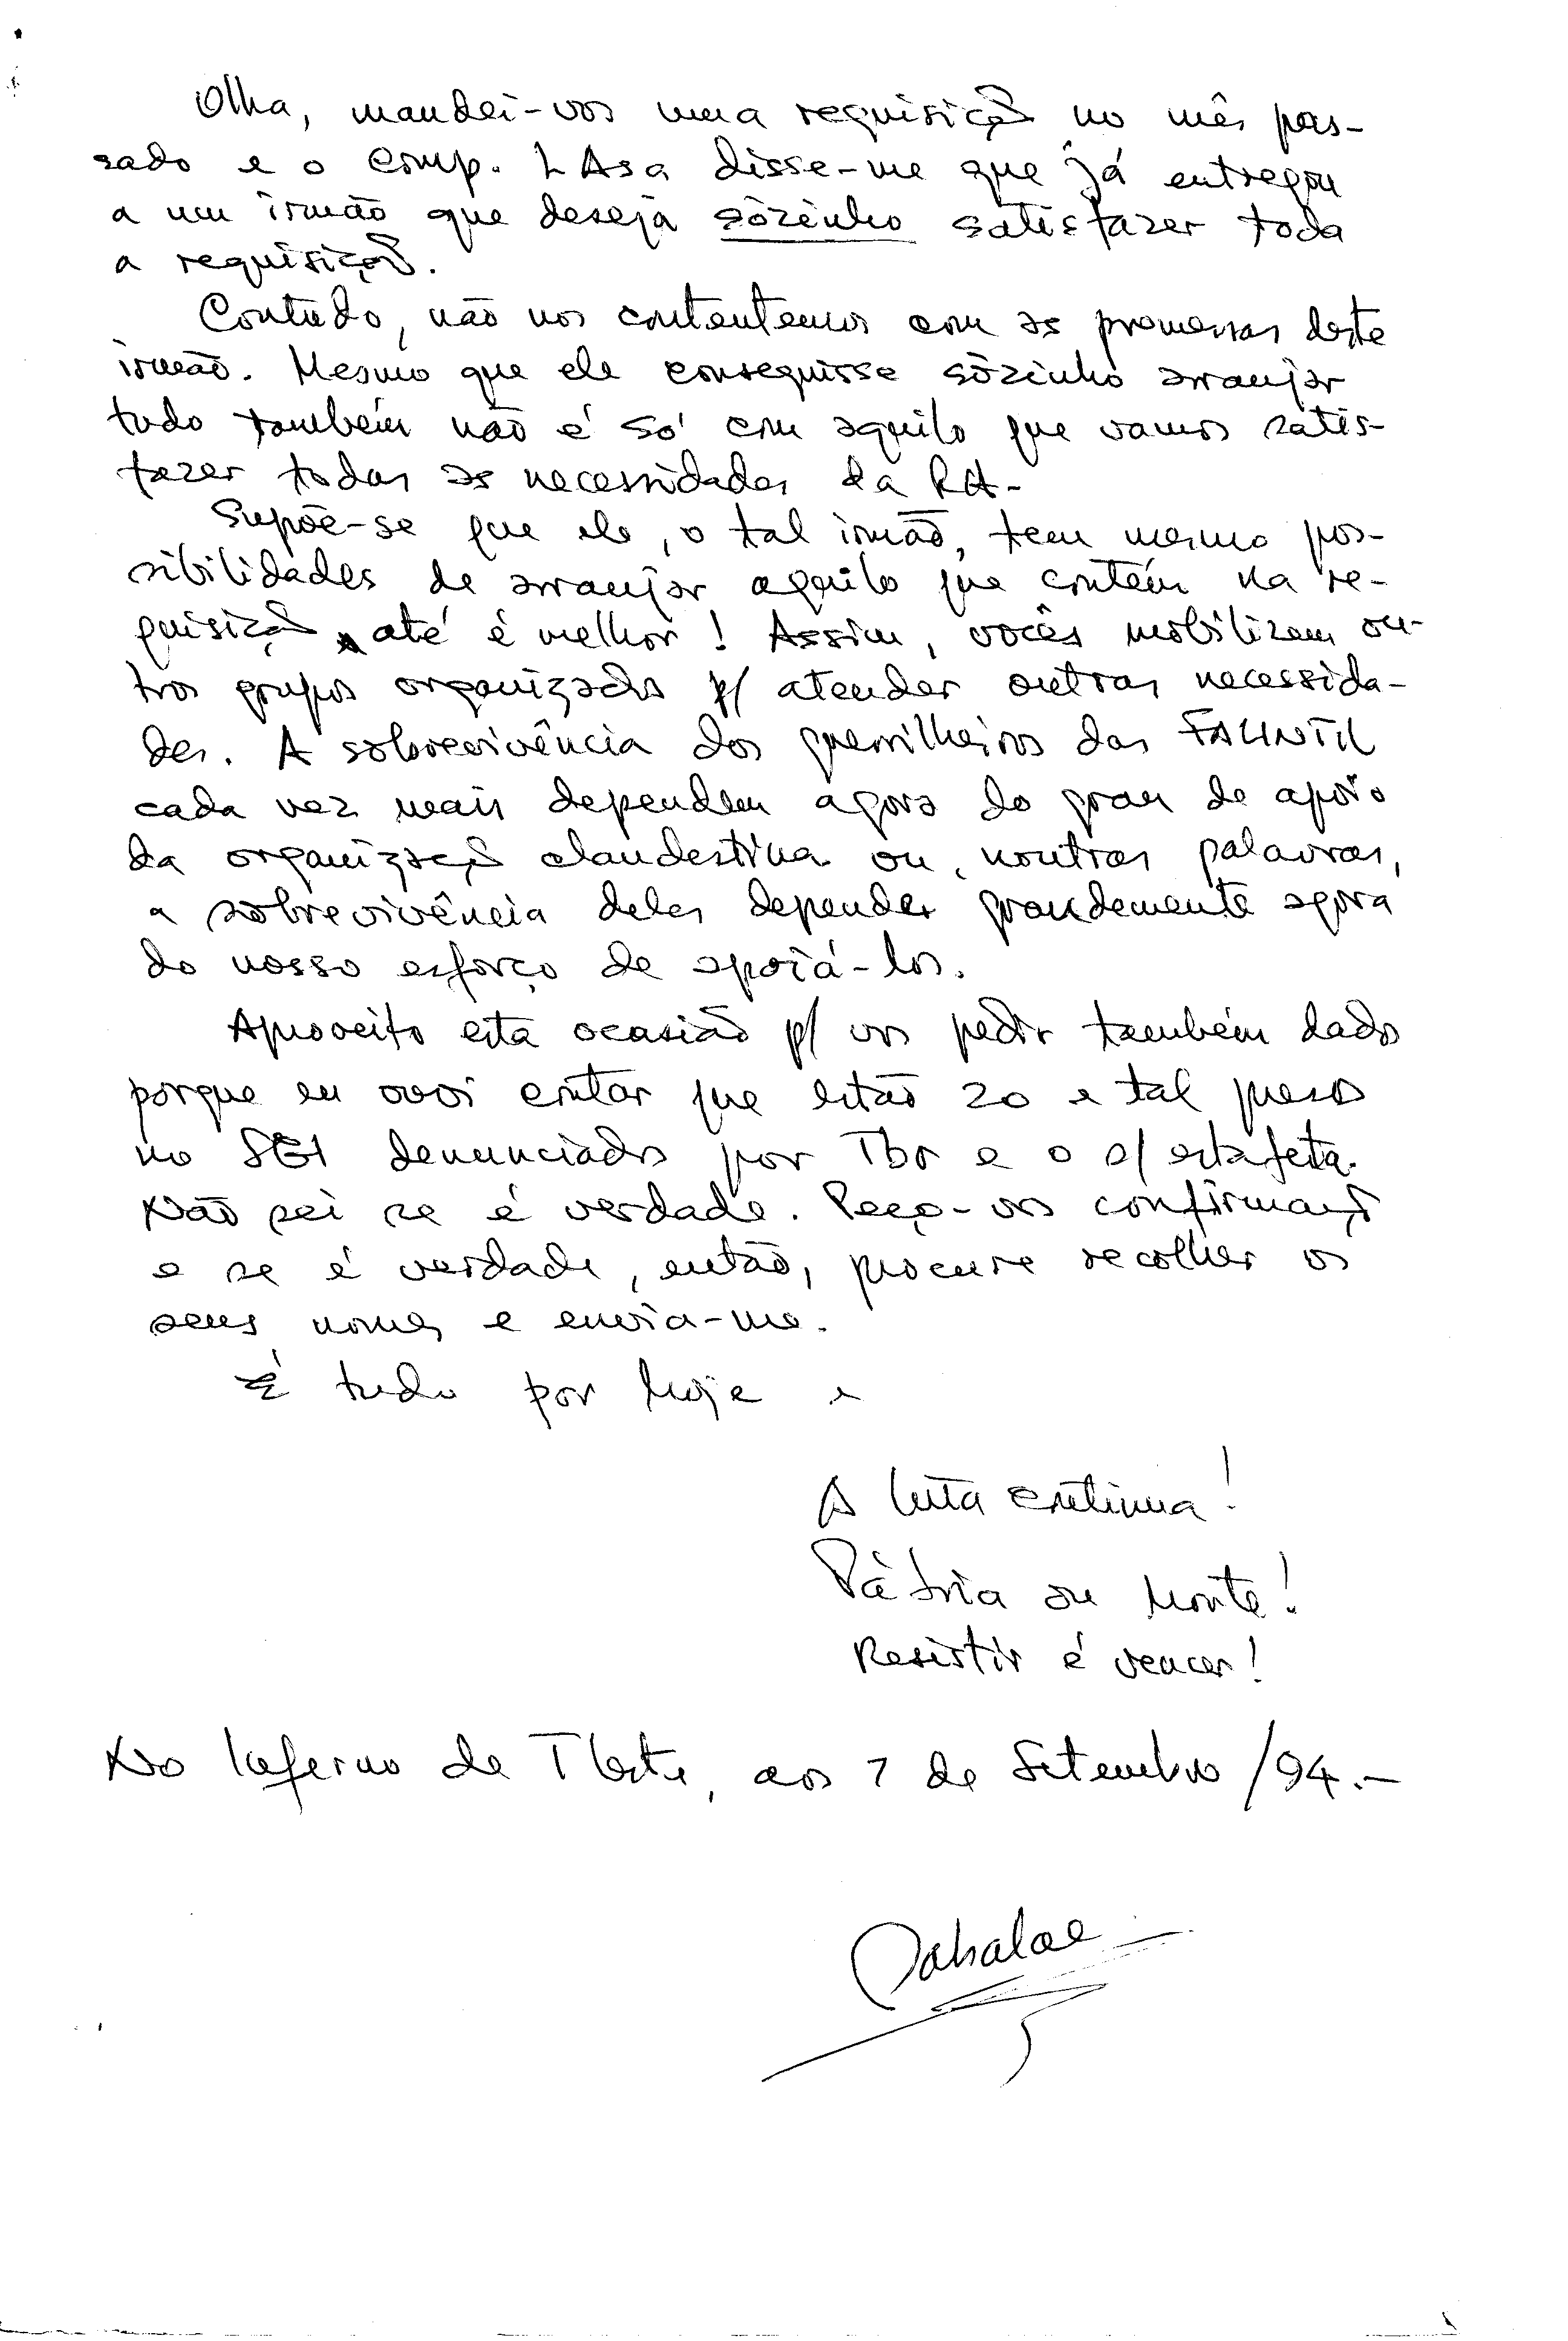 Olha, mandei-vos uma requisição no mês pas-
sado e o comp. L Asa disse-me que já entregou
a um irmão que deseja sòzinho satisfazer toda
a requisição.
Contudo, não nos contentemos com as promessas deste
irmão. Mesmo que ele conseguisse sòzinho arranjar
tudo também não é só com aquilo que vamos satis-
fazer todas as necessidades da RA-
Supõe-se que ele, o tal irmão, tem mesmo pos-
sibilidades de arranjar aquilo que contém na re-
quisição até é melhor! Assim, vocês mobilizem ou-
tros grupos organizados p/ atender outras necessida-
des. A sobrevivência dos guerrilheiros das FALINTIL
cada vez mais dependem agora do grau de apoio
da organização clandestina ou, noutras palavras,
a sobrevivência deles depender grandemente agora
do nosso esforço de apoiá-los.
Aproveito esta ocasião p/ vos pedir também dados
porque eu ouvi contar que estão 20 e tal presos
no SGI denunciados por Tbr e o s/ estafeta.
Não sei se é verdade. Peço-vos confirmação
e se é verdade, então, procure recolher os
seus nomes e envia-me.
É tudo por hoje e
A luta continua!
Pàtria ou Morte!
Resistir é vencer!
No Inferno de T Leste, aos 7 de Setembro /94.-